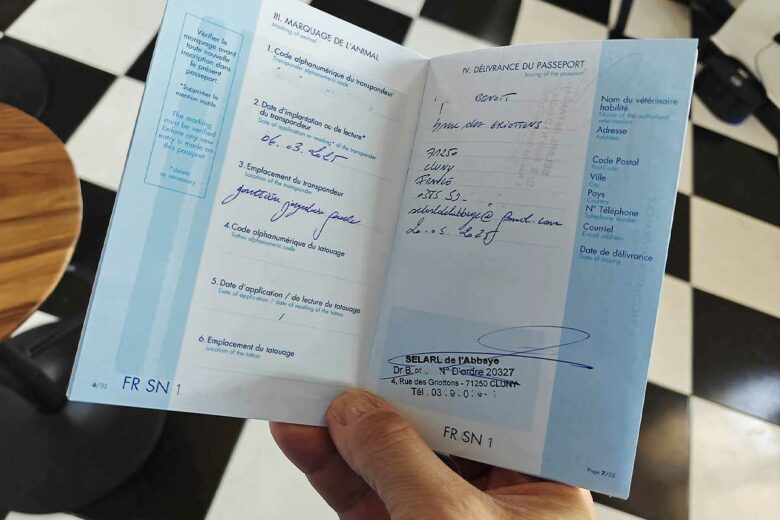 Vérifier le
marquage avant
toute nouvelle
inscription dans
le présent
passeport.
*Supprimer la
mention inutile
The marking
must be verified
before any new
entry is made on
this passport
*delete
as necessary
III. MARQUAGE DE L'ANIMAL
Marking of animal
1. Code alphanumérique du transpondeur
Transponder alphanumeric code
2. Date d'implantation ou de lecture*
du transpondeur
Date of application or reading* of the transponder
06.03.2025
3. Emplacement du transpondeur
Location of the transponder
gouttière jugulaire gauche
4. Code alphanumérique du tatouage
Tattoo alphanumeric code
5. Date d'application / de lecture du tatouage
Date of application / date of reading of the tattoo
/
6. Emplacement du tatouage
Location of the tattoo
6/32
FR SN 1
IV. DÉLIVRANCE DU PASSEPORT
Issuing of the passport
BENOIT
4 rue des GRIOTTONS.
71250
CLUNY
FRANCE
0385 59
selarldelabbaye@gmail.com
20.05.2025
Nom du vétérinaire
habilité
Name of the authorised
veterinarian
Adresse
Address
Code Postal
Postcode
Ville
City
Pays
Country
N° Téléphone
Telephone number
Courriel
E-mail address
Date de délivrance
Date of issuing
SELARL de l'Abbaye
Dr B. N° D'ordre 20327
4, Rue des Griottons - 71250 CLUNY
Tél. 03
FR SN 1
Page 7/32